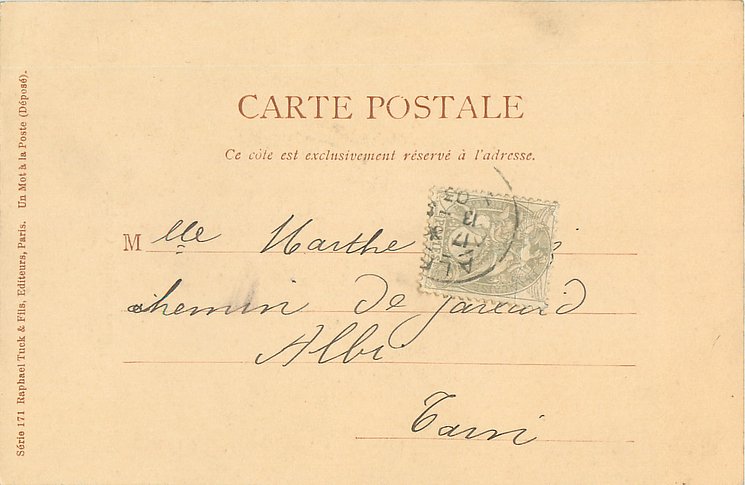 CARTE POSTALE
Ce côté est exclusivement réservé à l'adresse.
Mlle Marthe
chemin de
Albi
Tarn
Série 171 Raphael Tuck & Fils, Editeurs, Paris. Un Mot à la Poste (Déposé).